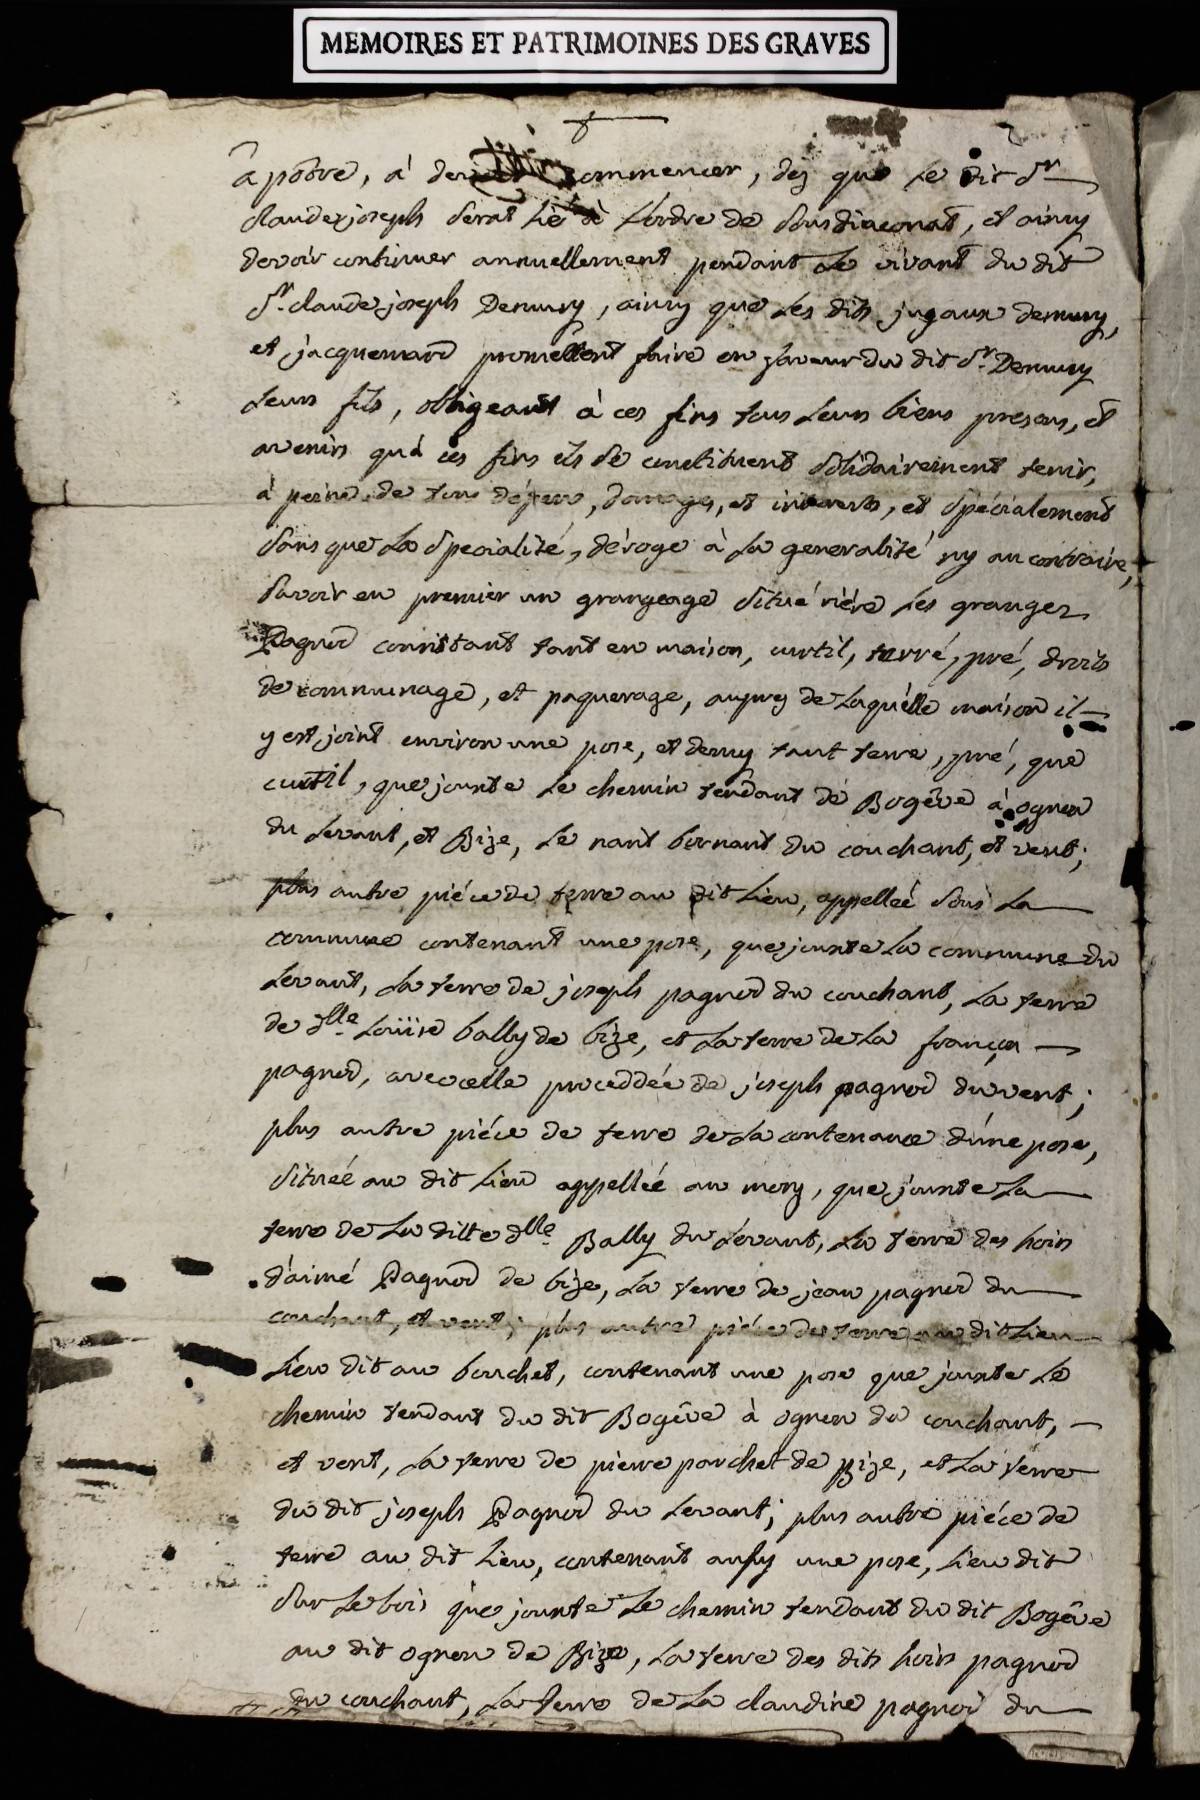 MEMOIRES ET PATRIMOINES DES GRAVES
à devoir commencer, dej que le dit Sr
claude joseph serat liè à Lordre de sousdiaconat, et ainsy
devoir continuer annuellement pendant Le vivant du dit
Sr. claude joseph Demury, ainsy que Les dits jugaux demury,
et jacquemard promettent faire en faveur du dit Sr. Demury
Leur fils, obligeant à ces fins tous Leurs biens presens, et
avenirs qu'à ces fins ils se constituent solidairement tenir,
à peine de tous dépens, domages, et interests, et spécialement
sans que La specialité, déroge à La generalité ny au contraire,
savoir en premier un grangeage situé riére Les granges
Pagnod consistant tant en maison, curtil, terré, pré, droits
de communage, et paquerage, aupres de Laquélle maison il
y est joint environ une pose, et demy tant terre, pré, que
curtil, que jouxte Le chemin tendant de Bogêve à ognon
du Levant, et Bize, Le nant bornant du couchant, et vent;
plus autre piéce de terre au dit Lieu, appelleé sous La
commune contenant une pose, que jouxte La commune du
Levant, La terre de joseph pagnod du couchant, La terre
de dlle. Loüise bally de bize, et La terre de La françoa
pagnod, avec celle proceddée de joseph pagnod du vent;
plus autre piéce de terre de La contenance d'úne pose,
situéé au dit Lieu appelléé au mory, que jouxte La
terre de La ditte dlle. Bally du Levant, La terre des hoirs
d'aimé Pagnod de bize, La terre de jean pagnod du
couchant, et vent; plus autre piéce de terre au dit Lieu
Lieu dit au bouchet, contenant une pose que jouxte Le
chemin tendant du dit Bogêve à ognon du couchant,
et vent, La terre de pierre ponchet de Bize, et La terre
du dit joseph Pagnod du Levant; plus autre piéce de
terre au dit Lieu, contenant aussy une pose, Lieu dit
sur Le bois que jouxte Le chemin tendant du dit Bogêve
au dit ognon de Bize, La terre des dits hoirs pagnod
du couchant, La terre de La claudine pagnod du